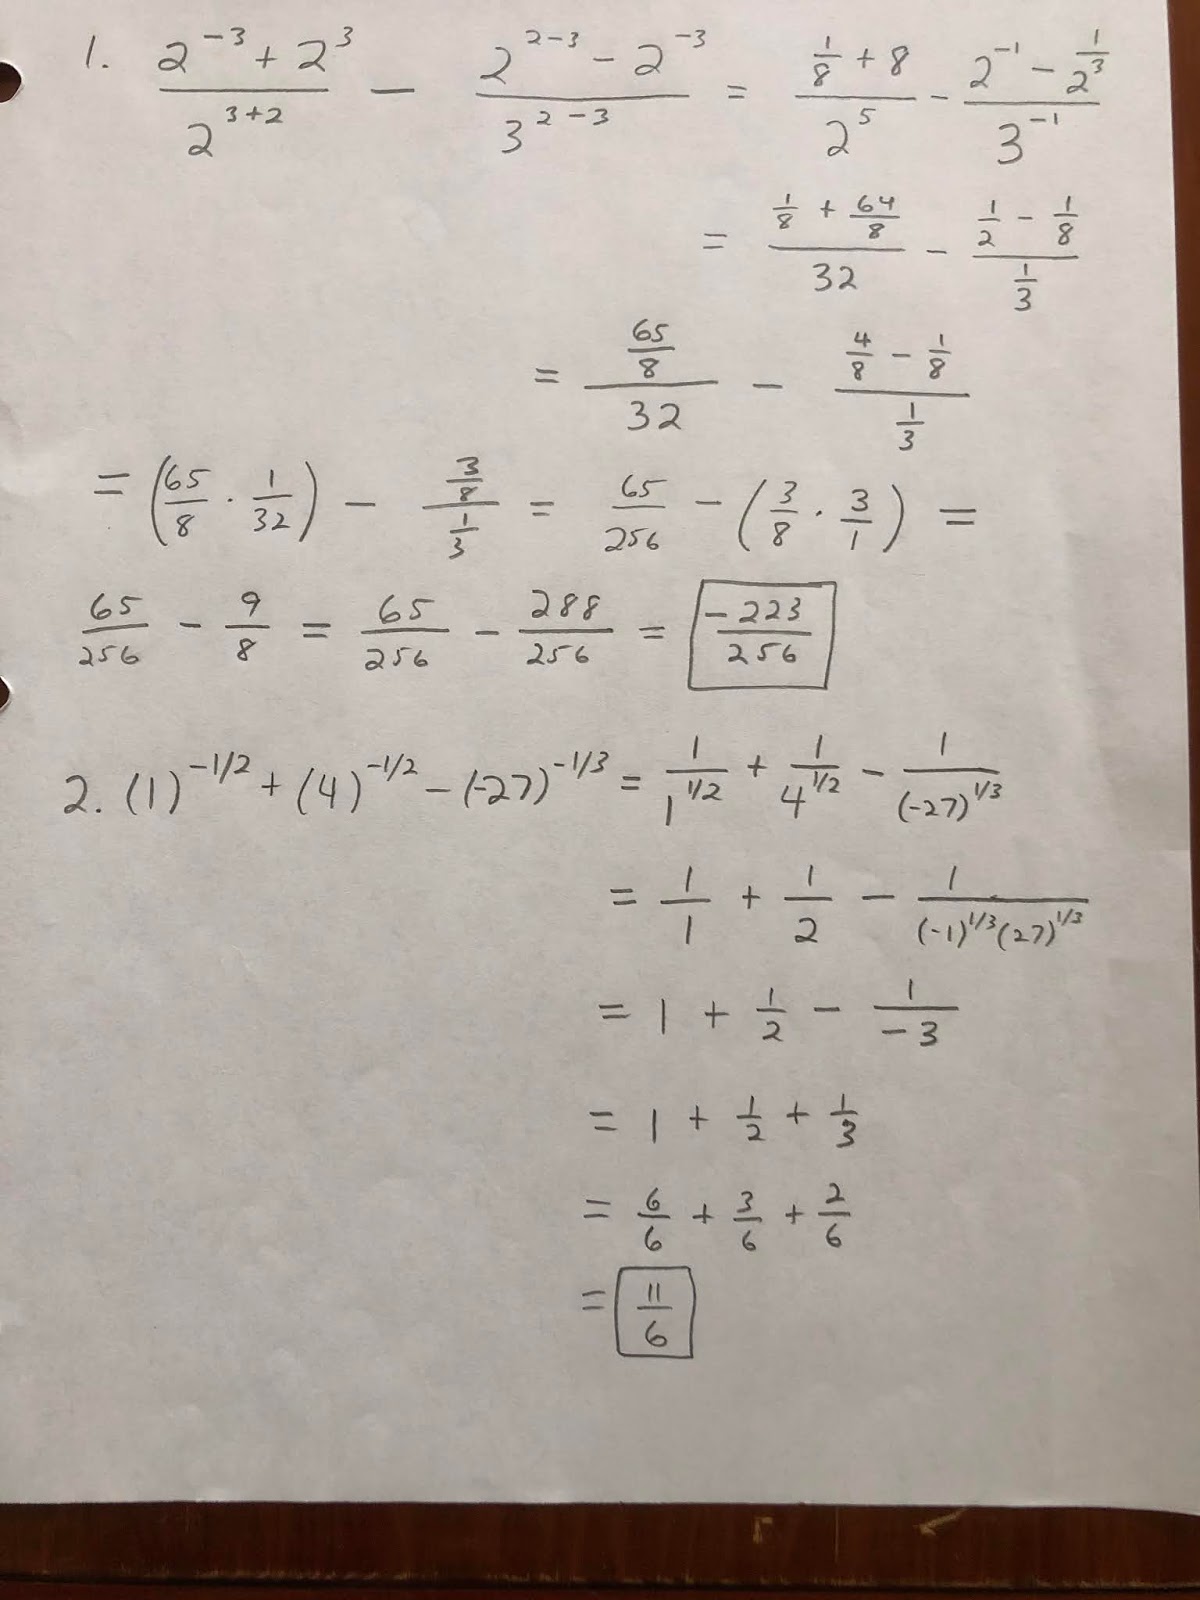 1. (2^-3 + 2^3)/(2^(3+2)) - (2^(2-3) - 2^-3)/(3^(2-3)) = (1/8 + 8)/(2^5) - (2^-1 - 1/2^3)/(3^-1)
= (1/8 + 64/8)/32 - (1/2 - 1/8)/(1/3)
= (65/8)/32 - (4/8 - 1/8)/(1/3)
= (65/8 · 1/32) - (3/8)/(1/3) = 65/256 - (3/8 · 3/1) =
65/256 - 9/8 = 65/256 - 288/256 = -223/256
2. (1)^(-1/2) + (4)^(-1/2) - (-27)^(-1/3) = 1/1^(1/2) + 1/4^(1/2) - 1/(-27)^(1/3)
= 1/1 + 1/2 - 1/((-1)^(1/3) (27)^(1/3))
= 1 + 1/2 - 1/-3
= 1 + 1/2 + 1/3
= 6/6 + 3/6 + 2/6
= 11/6